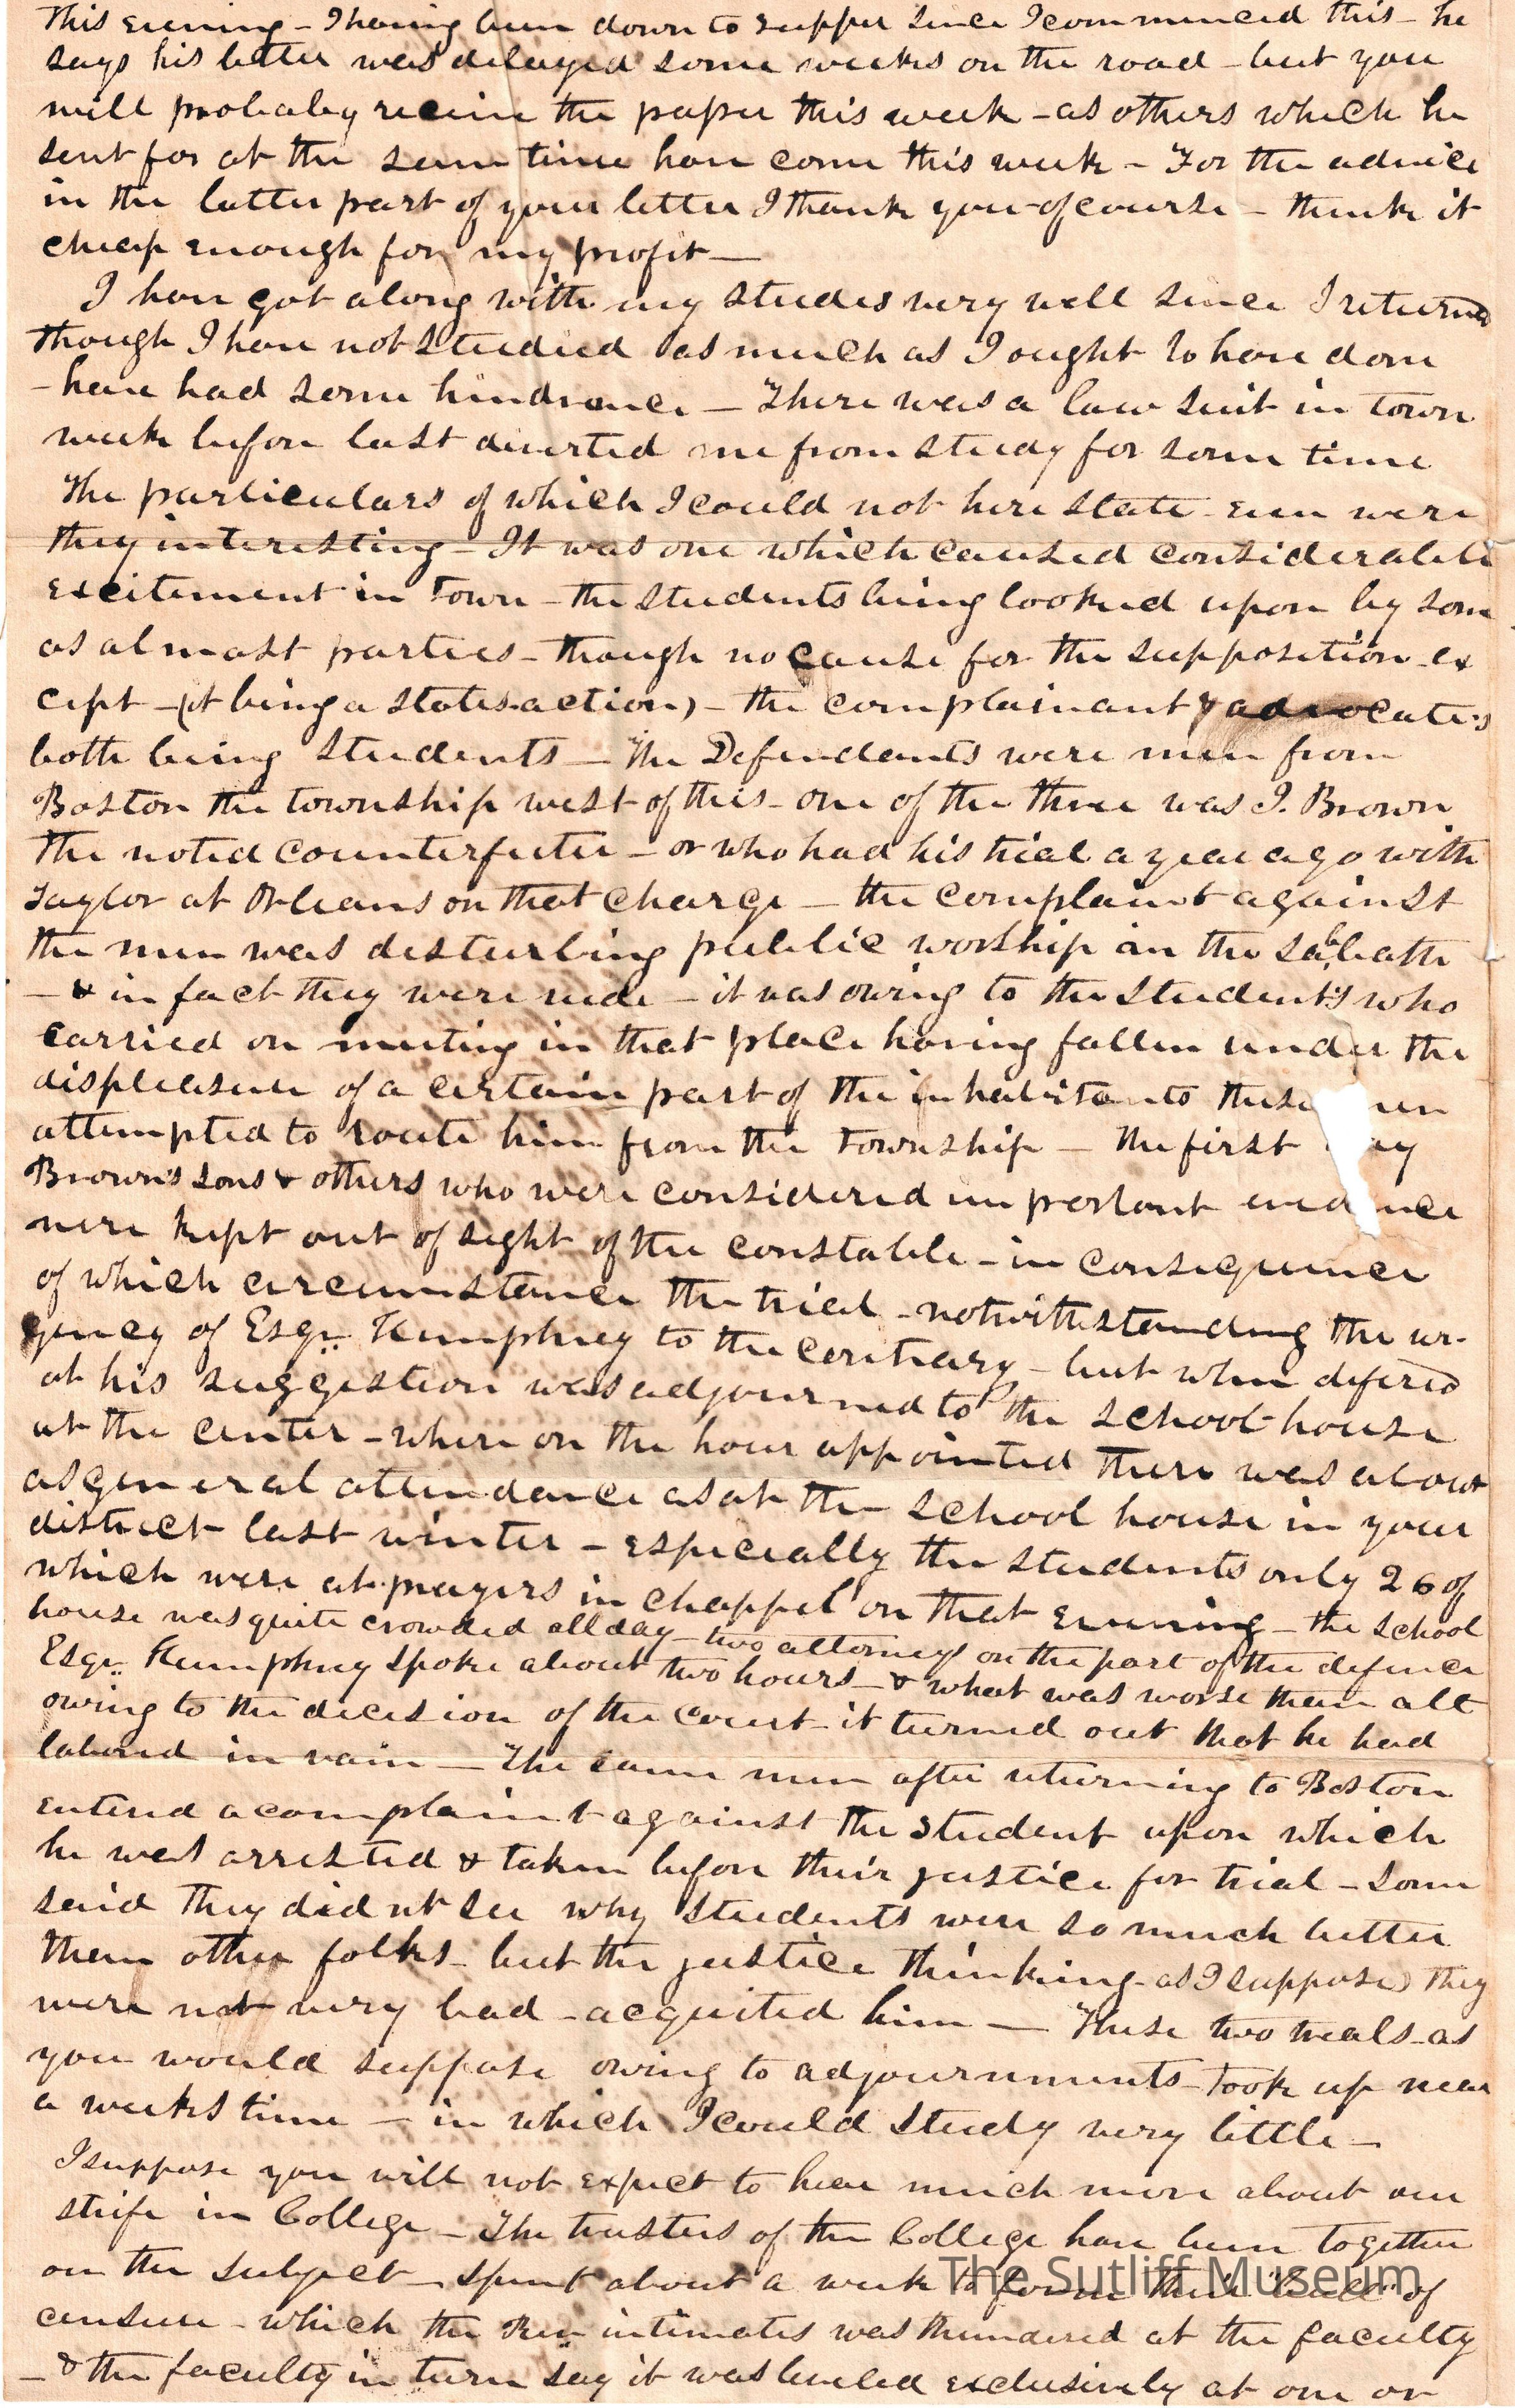 This evening - I having been down to supper since I commenced this - he
says his letter was delayed some weeks on the road - but you
will probabey receive the paper this week - as others which he
sent for at the same time have come this week - For the advice
in the latter part of your letter I thank you of course - think it
cheap enough for my profit —
I have got along with my studies very well since I returned
though I have not studied as much as I ought to have done
- have had some hindrance — There was a law suit in town
week before last diverted me from study for some time
The particulars of which I could not here state - even were
they interesting - It was one which caused considerable
excitement in Town - the students being looked upon by some
as almost parties - though no cause for the supposition ex
cept - (it being a states action) - the complainant & advocates
both being Students — The Defendants were men from
Boston the township west of this - one of the three was J. Brown
the noted Counterfeiter - or who had his trial a year ago with
Taylor at Orleans on that charge — the complaint against
the men was desturbing public worship on the sabbath
- & in fact they were rude - it was owing to the students who
carried on meeting in that place having fallen under the
displeasure of a certain part of the inhabitants these men
attempted to route him from the Township — The first day
Brown's sons & others who were considered important evidence
were kept out of sight of the constable - in consequence
of which circumstance the trial - notwithstanding the ur-
gency of Esqr. Humphrey to the contrary - but when defered
at his suggestion was adjourned to the school house
at the center - where on the hour appointed there was about
as general attendance as at the school house in your
district last winter - especially the students only 26 of
which were at prayers in chappel on that evening - the school
house was quite crowded all day - two attorneys on the part of the defence
Esqr. Humphrey spoke about two hours - & what was worse than all
owing to the decision of the court it turned out that he had
labored in vain — The same men after returning to Boston
entered a complaint against the student upon which
he was arrested & taken before their justice for trial - some
said They did nt see why students were so much better
than other folks - but the justice thinking - as I suppose) they
were not very bad - acquited him — These two trials - as
you would suppose owing to adjournments - took up near
a weeks time — in which I could study very little —
I suppose you will not expect to hear much more about our
strife in College - The trustees of the College have been together
on the subject - spent about a week to form their "Bull" of
censure - which the Rev.. intimates was thundered at the faculty
- & the faculty in turn say it was leveled exclusively at one or
The Sutliff Museum